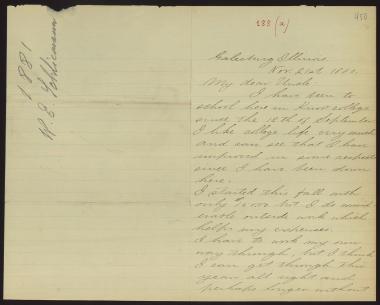 1881
188 (a)
450
Galesburg Illinois
Nov. 21st 1881.
My dear Uncle:
I have been to
school here in Knox college
since the 12th of September
I like college life very much
and can see that I have
improved in some respects
since I have been down
here.
I started this fall with
only but I do
outside work which
helps my expenses.
I have to work my own
way through, but I think
I can get through this
year all right and
perhaps longer without